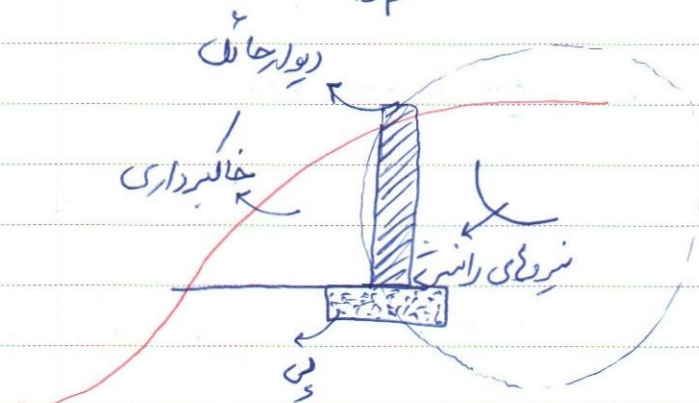 دیوار حائل
خاکبرداری
نیروهای رانش
پی